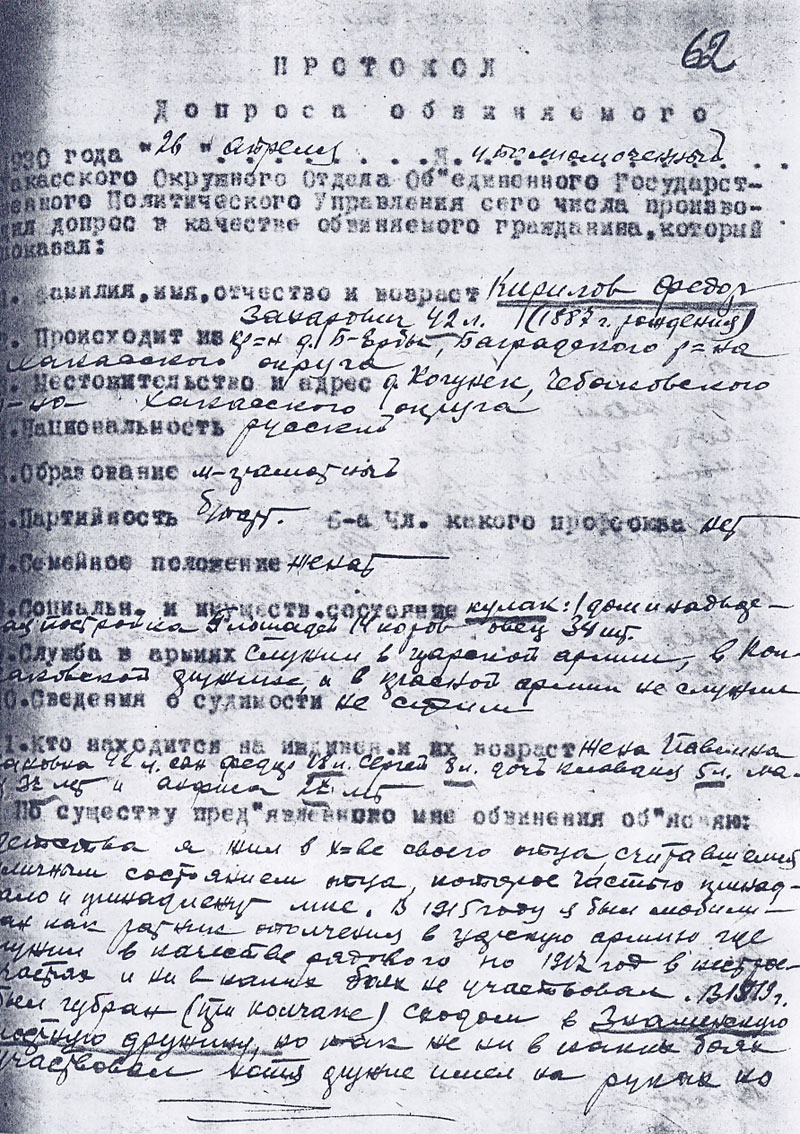 62
ПРОТОКОЛ
Допроса обвиняемого
1930 года "26" апреля . . . . . Я. уполномоченный
Хакасского Окружного Отдела Об"единенного Государст-
венного Политического Управления сего числа произво-
дил допрос в качестве обвиняемого гражданина,который
показал:
1. Фамилия,имя,отчество и возраст Кирилов Федор
Захарович 42 л. (1887 г. рождения)
2. Происходит из кр=н д. Б-Ербы, Боградского р=на
Хакасского округа
3. Местожительство и адрес д. Когунек, Чебаковского
р-на Хакасского округа
4.Национальность русский
5.Образование м-грамотный
6.Партийность б/парт. б-а Чл. какого профсоюза нет
7.Семейное положение женат
8.Социальн. и имуществ.состояние кулак: дом и надво-
постройка 9 лошадей 14 коров овец 34 шт.
9.Служба в армиях служил в царской армии, в Кол-
чаковской дружине, и в красной армии не служил
10.Сведения о судимости не судим
11.Кто находится на иждивен.и их возраст жена Павлина
42 л. сын Федор 18 л. Сергей 8 л. дочь Клавдия 5 л.
и Анфиса лет
По существу пред"явленного мне обвинения об"ясняю:
детства я жил в х=ве своего отца, считавшемся
личным состоянием отца, которое частью принад-
ало и принадлежит мне. В 1915 году я был мобили-
ан как ратник ополчения в царскую армию где
служил в качестве рядового по 1917 год в нестрое-
частях и ни в каких боях не участвовал. В 1919 г.
был убран (при Колчаке) сходом в Знаменскую
дружину, но как же ни в каких боях
участвовал хотя оружие имел на руках но